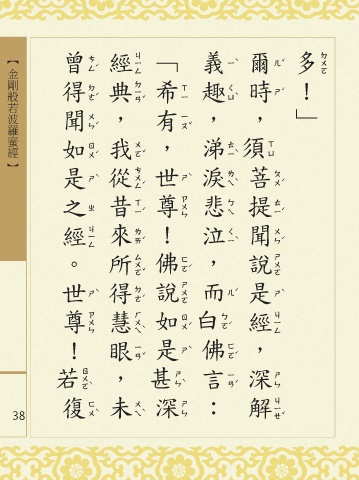 多！」
爾時，須菩提聞說是經，深解
義趣，涕淚悲泣，而白佛言：
「希有，世尊！佛說如是甚深
經典，我從昔來所得慧眼，未
曾得聞如是之經。世尊！若復
【金剛般若波羅蜜經】
38